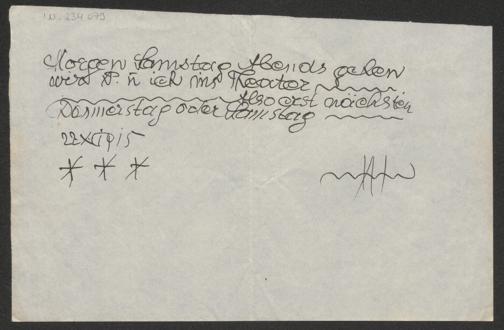 I.N. 234.079
Morgen Samstag Abends gehen
wir P. u ich ins Teater
Also erst nächsten
Donnerstag oder Samstag
22 XI 1915
* * *